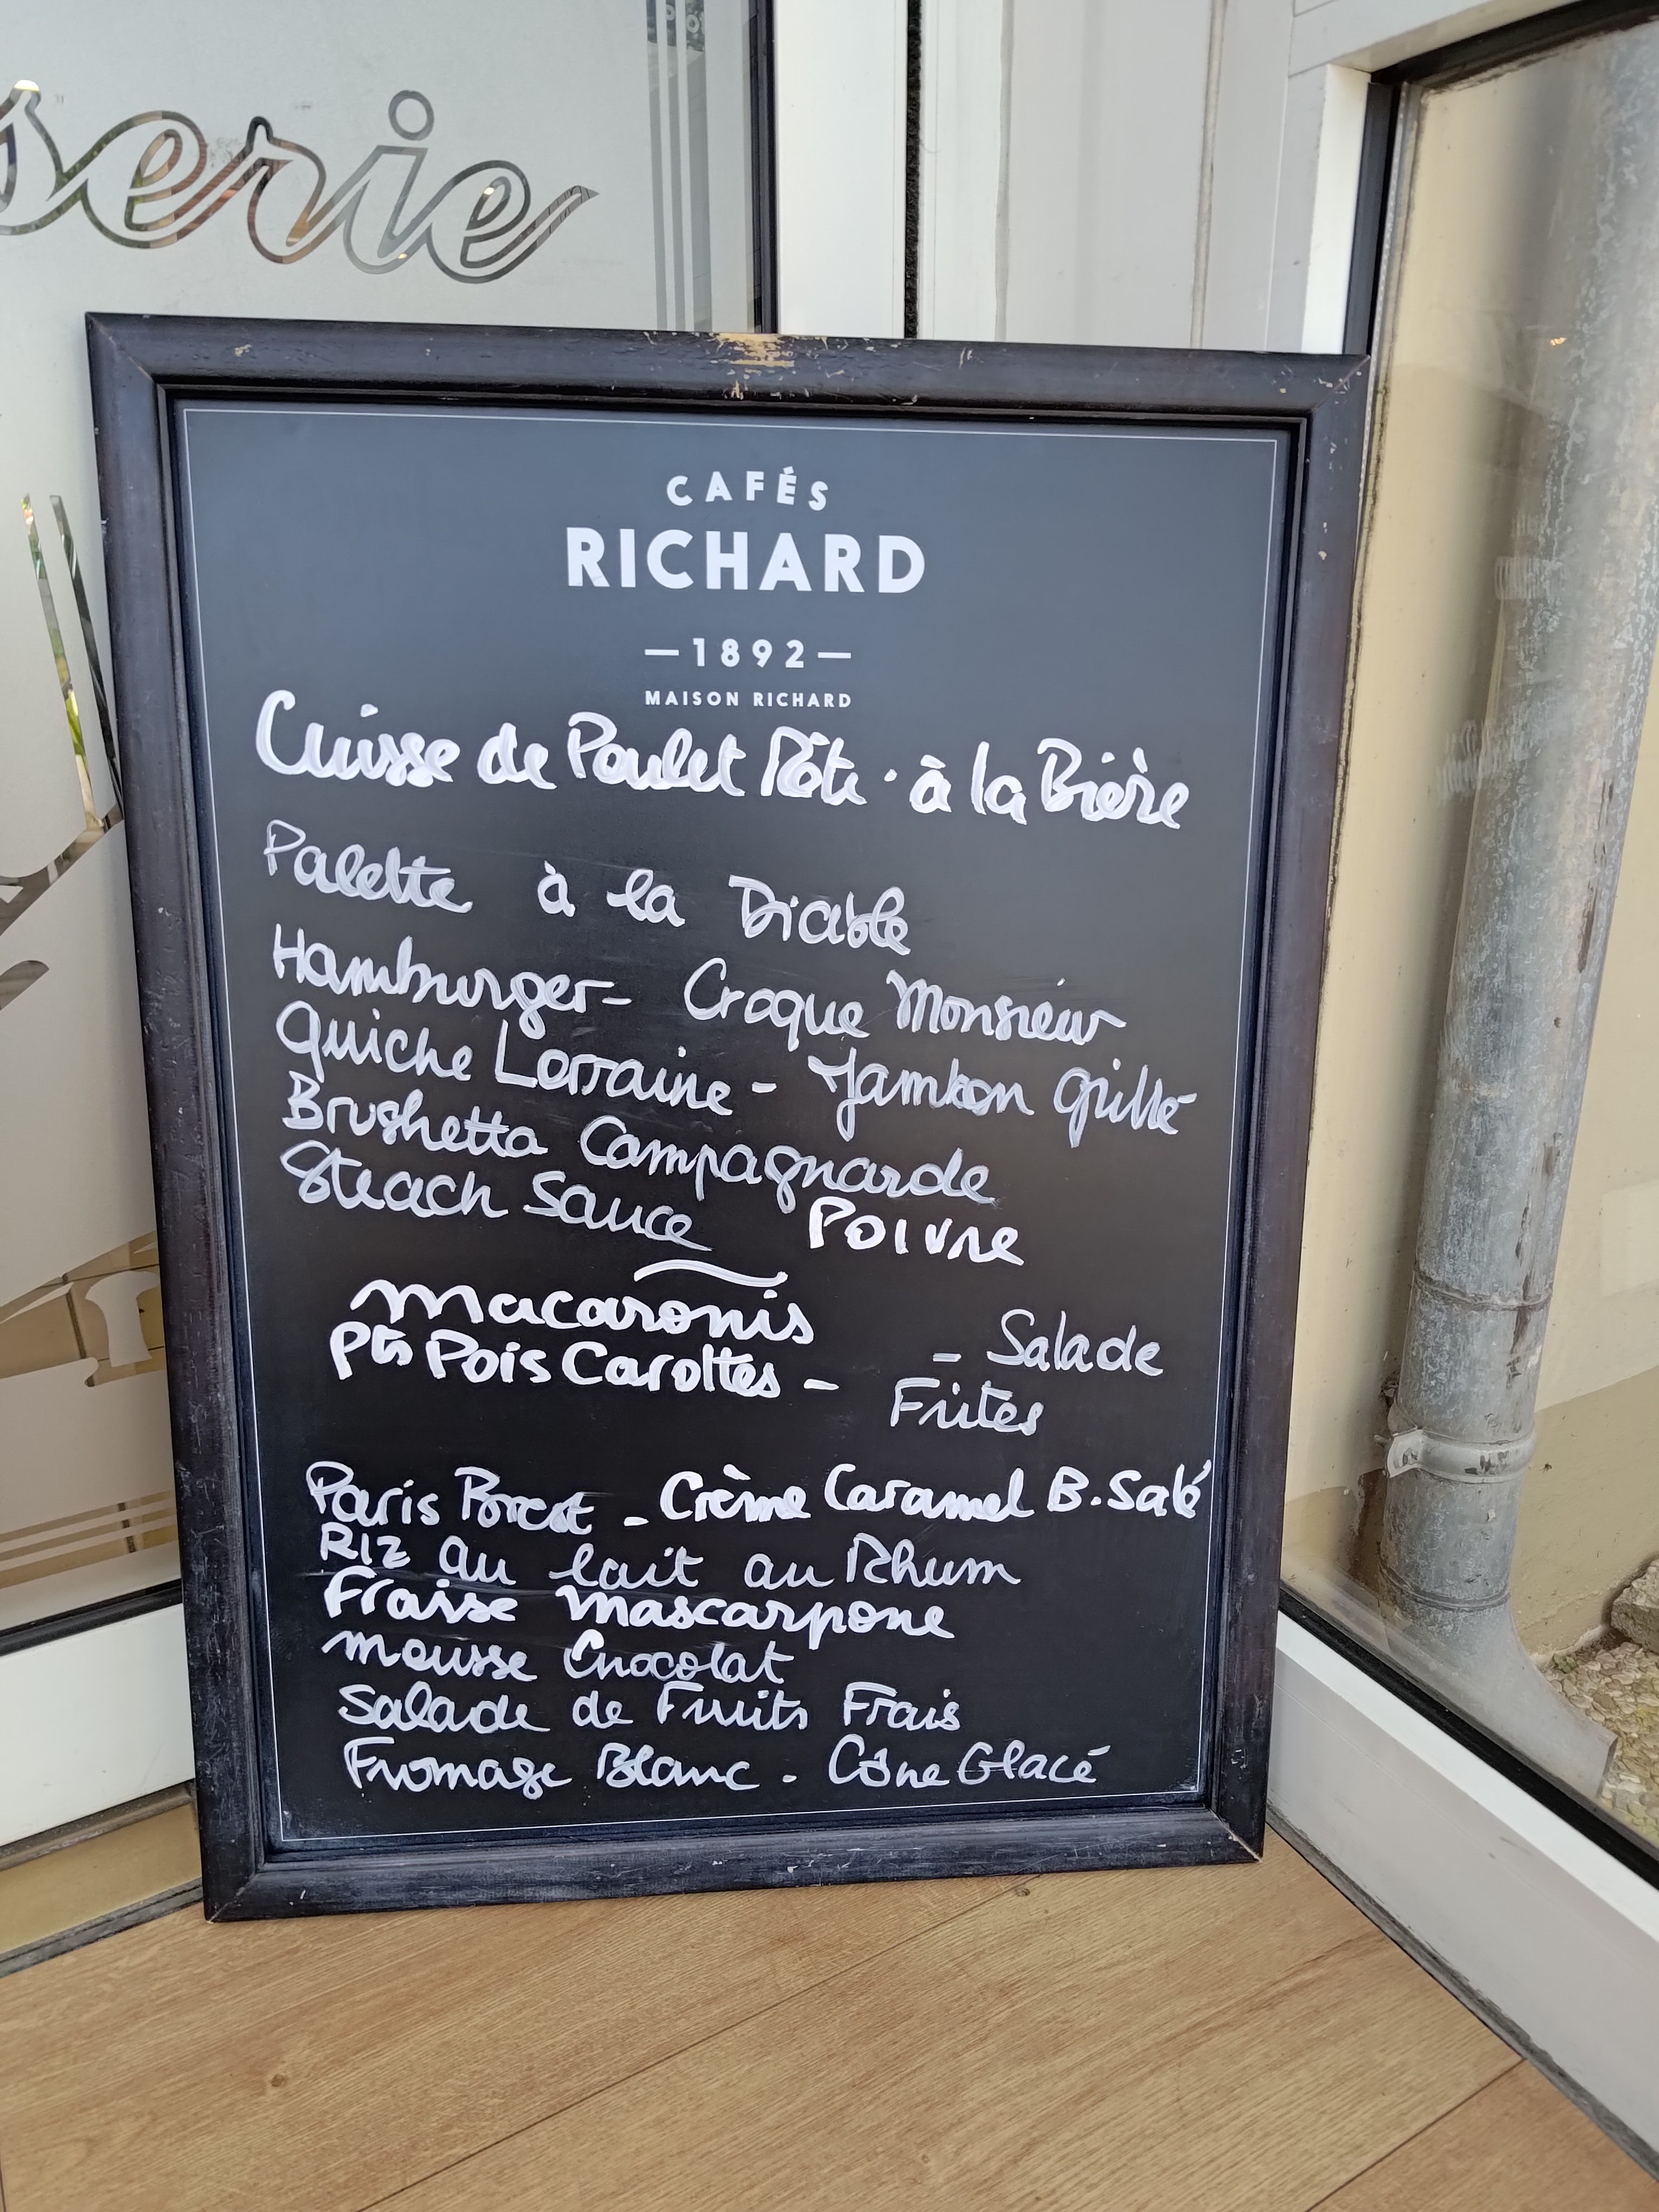 serie
CAFÉS
RICHARD
—1892—
MAISON RICHARD
Cuisse de Poulet Rôtie à la Bière
Palette à la Diable
Hamburger - Croque Monsieur
Quiche Lorraine - Jambon grillé
Brushetta Campagnarde
Steach Sauce Poivre
Macaronis
- Salade
Pts Pois Carottes -
Frites
Paris Brest - Crème Caramel B. Salé
Riz au lait au Rhum
Fraise Mascarpone
Mousse Chocolat
Salade de Fruits Frais
Fromage Blanc - Cône Glacé